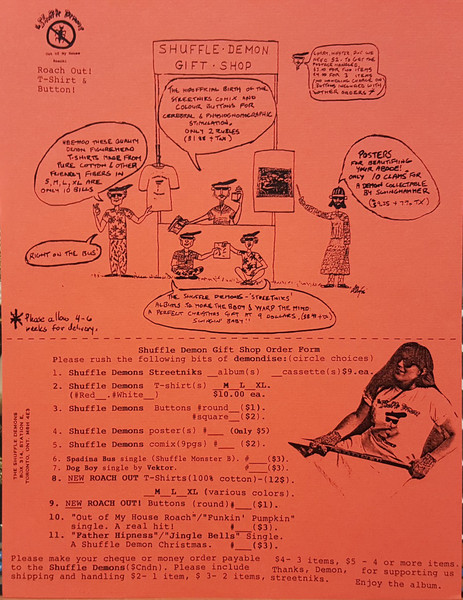 Shuffle Demons
Out of My House
Roach!
Roach Out!
T-Shirt &
Button!
SHUFFLE · DEMON
GIFT · SHOP
SORRY, HIPSTER, BUT WE
NEED $2. TO GET THE
POSTAGE HANDLED,
THE UNOFFICIAL BIRTH OF THE
STREETNIKS COMIX AND
COLOUR BUTTONS FOR
CEREBRAL & PHYSIOGNOMOGRAPHIC
STIMULATION,
ONLY 2 RUBLES
($1.88 + TAX)
THESE QUALITY
DEMON FIGUREHEAD
T-SHIRTS MADE FROM
PURE COTTON & OTHER
FRIENDLY FIBERS IN
S, M, L, XL ARE
ONLY 10 BILLS
POSTERS
FOR BEAUTIFYING
YOUR ABODE!
ONLY 10 CLAMS FOR
A DEMON COLLECTABLE
BY SWINGHAMMER
RIGHT ON THE BUS
THE SHUFFLE DEMONS-'STREETNIKS'
ALBUMS TO MOVE THE BODY & WARP THE MIND
A PERFECT CHRISTMAS GIFT AT 9 DOLLARS,
SWINGIN' BABY!!
* Please allow 4-6
weeks for delivery.
Shuffle Demon Gift Shop Order Form
Please rush the following bits of demondise:(circle choices)
1. Shuffle Demons Streetniks __album(s) ___cassette(s)$9.ea.
2. Shuffle Demons T-shirt(s) __M_L_XL.
(#Red__.#White__) $10.00 ea.
3. Shuffle Demons Buttons #round__($1).
#square__($2).
4. Shuffle Demons poster(s) #____(Only $5)
5. Shuffle Demons comix(9pgs) #____($2).
6. Spadina Bus single (Shuffle Monster B). #___($3).
7. Dog Boy single by Vektor. #___($3).
8. NEW ROACH OUT T-Shirts(100% cotton)-(12$).
__M_L_XL (various colors).
9. NEW ROACH OUT! Buttons (round)#___($1).
10. "Out of My House Roach"/"Funkin' Pumpkin"
single. A real hit! #___($3).
11. "Father Hipness"/"Jingle Bells" Single.
A Shuffle Demon Christmas. #___($3).
THE SHUFFLE DEMONS
BOX 314, STATION E,
TORONTO, ONT. M6H 4E3
Shuffle Demons
Please make your cheque or money order payable
to the Shuffle Demons($Cndn). Please include
shipping and handling $2- 1 item, $ 3- 2 items,
$4- 3 items, $5 - 4 or more items.
Thanks, Demon, for supporting us
streetniks. Enjoy the album.